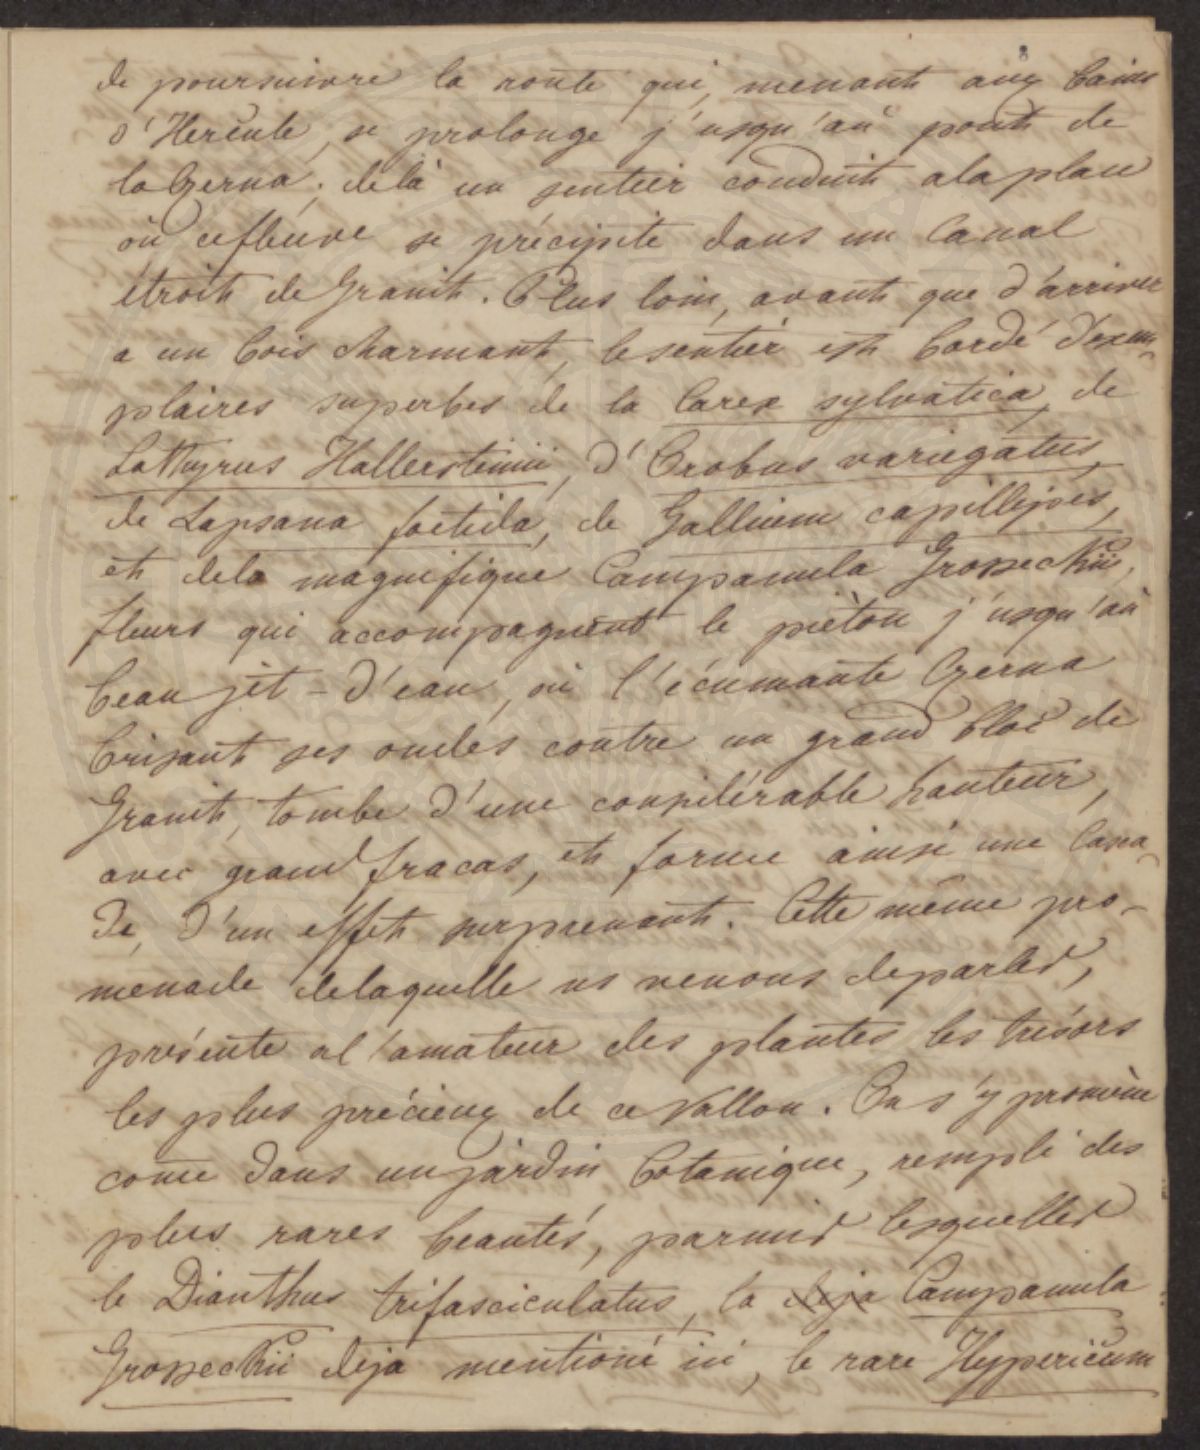 de poursuivre la route qui, menant aux bains
d'Hercule, se prolonge j'usqu'au pont de
la Czerna; delà un sentier conduit a la place
où ce fleuve se précipite dans un Canal
étroit de Granit. Plus loin, avant que d'arriver
a un bois charmant, le sentier est bordé d'exem-
plaires superbes de la Carex sylvatica, de
Lathyrus Hallersteinii, d'Orobus variegatus,
de Lapsana foetida, de Gallium capillipes,
et dela magnifique Campanula Grossechii,
fleurs qui accompagnent le pièton j'usqu'au
beau jèt-d'eau, où l'écumante Czerna
brisant ses ondes contre un grand bloc de
Granit, tombe d'une considérable hauteur,
avec grand fracas, et forme ainsi une Casca-
de, d'un effet surprenant. Cette même pro-
menade delaquelle ns venons deparler,
présente al'amateur des plantes les trésors
les plus précieux de ce Vallon. On s'y promène
come dans un jardin botanique, rempli des
plus rares beautés, parmis lesquelles
le Dianthus trifasciculatus, la deja Campanula
Grossechii deja mentioné ici, le rare Hypericum